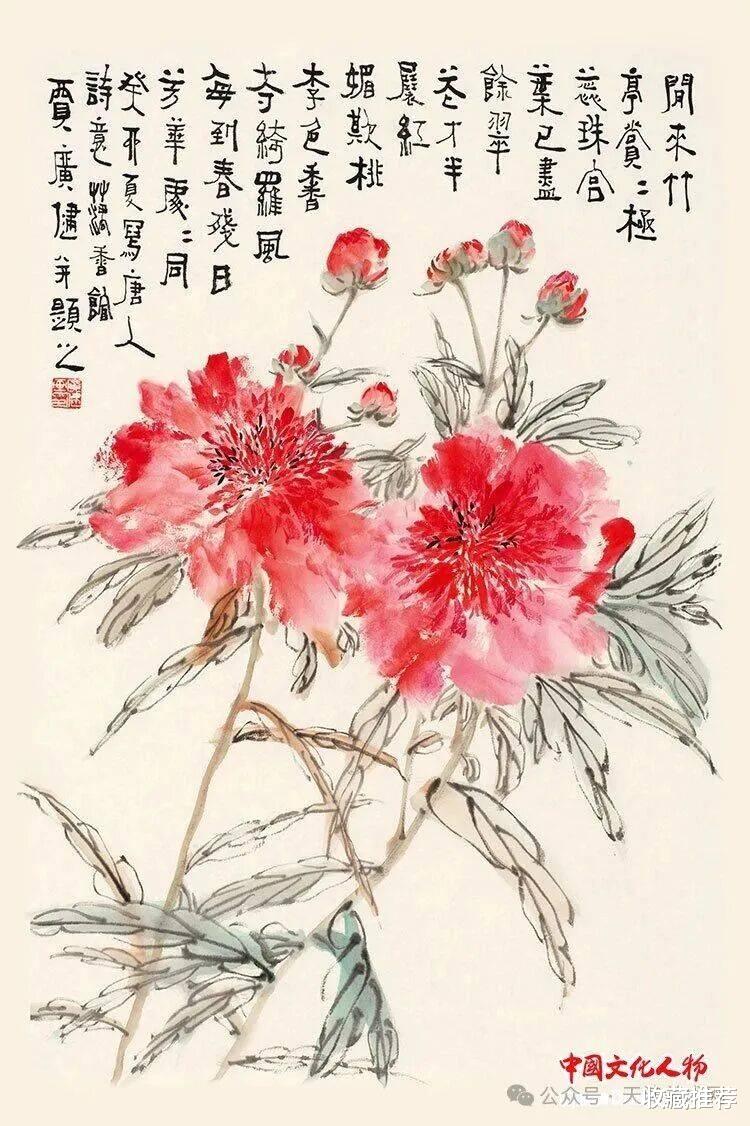 閒來竹
亭賞〻極
蕊珠宮
葉已盡
餘翠
花才半
展紅
媚欺桃
李色香
奪綺羅風
每到春殘日
芳華處〻同
癸卯夏寫唐人
詩意 香館
賈廣健并題之
中国文化人物
公众号·天
收藏推荐